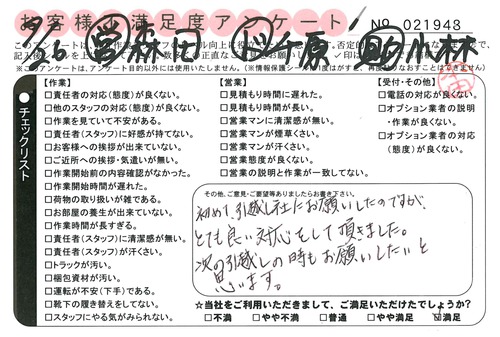 お客様不満足度アンケート
№ 021948
営 森田 千原 助 小林
【作業】
□責任者の対応(態度)が良くない。
□他のスタッフの対応(態度)が良くない。
□作業を見ていて不安がある。
□責任者(スタッフ)に好感が持てない。
□お客様への挨拶が出来ていない。
□ご近所への挨拶・気遣いが無い。
□作業開始前の内容確認がなかった。
□作業開始時間が遅れた。
□荷物の取り扱いが雑である。
□お部屋の養生が出来ていない。
□作業時間が長すぎる。
□責任者(スタッフ)に清潔感が無い。
□責任者(スタッフ)が汗くさい。
□トラックが汚い。
□梱包資材が汚い。
□運転が不安(下手)である。
□靴下の履き替えをしてない。
□スタッフにやる気がみられない。
【営業】
□見積もり時間に遅れた。
□見積もり時間が長い。
□営業マンに清潔感が無い。
□営業マンが煙草くさい。
□営業マンが汗くさい。
□営業態度が良くない。
□営業の説明と作業が一致してない。
【受付・その他】
□電話の対応が良くない。
□オプション業者の説明
・作業が良くない。
□オプション業者の対応
(態度)が良くない。
チェックリスト
その他、ご意見・ご要望等ありましたらお書き下さい。
初めて引越し社にお願いしたのですが、
とても良い対応をして頂きました。
次の引越しの時もお願いしたいと
思います。
☆当社をご利用いただきまして、ご満足いただけたでしょうか?
□不満 □やや不満 □普通 □やや満足 ☑満足